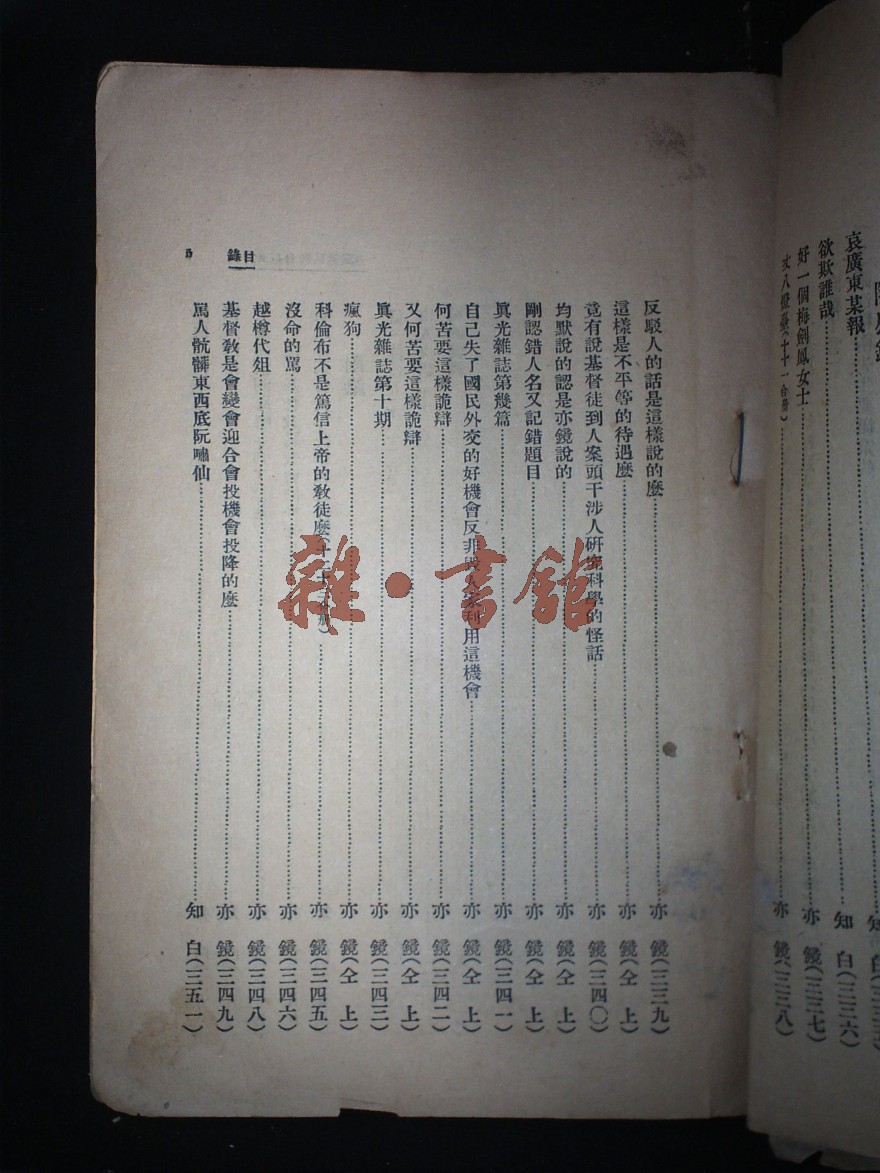 哀廣東某報
知 白(三三六)
欲欺誰哉
亦 鏡(三三七)
好一個梅劍鳳女士
亦 鏡(三三八)
目錄
5
反駁人的話是這樣說的麼……亦 鏡(三三九)
這樣是不平等的待遇麼……亦 鏡(仝 上)
竟有說基督徒到人案頭干涉人研究科學的怪話……亦 鏡(三四〇)
均默說的認是亦鏡說的……亦 鏡(仝 上)
剛認錯人名又記錯題目……亦 鏡(仝 上)
眞光雜誌第幾篇……亦 鏡(三四一)
自己失了國民外交的好機會反非毀人家利用這機會……亦 鏡(仝 上)
何苦要這樣詭辯……亦 鏡(三四二)
又何苦要這樣詭辯……亦 鏡(仝 上)
眞光雜誌第十期……亦 鏡(三四三)
瘋狗……亦 鏡(仝 上)
科倫布不是篤信上帝的敎徒麼……亦 鏡(三四五)
沒命的罵……亦 鏡(三四六)
越樽代俎……亦 鏡(三四八)
基督敎是會變會迎合會投機會投降的麼……亦 鏡(三四九)
罵人骯髒東西底阮嘯仙……知 白(三五一)
雜·書館